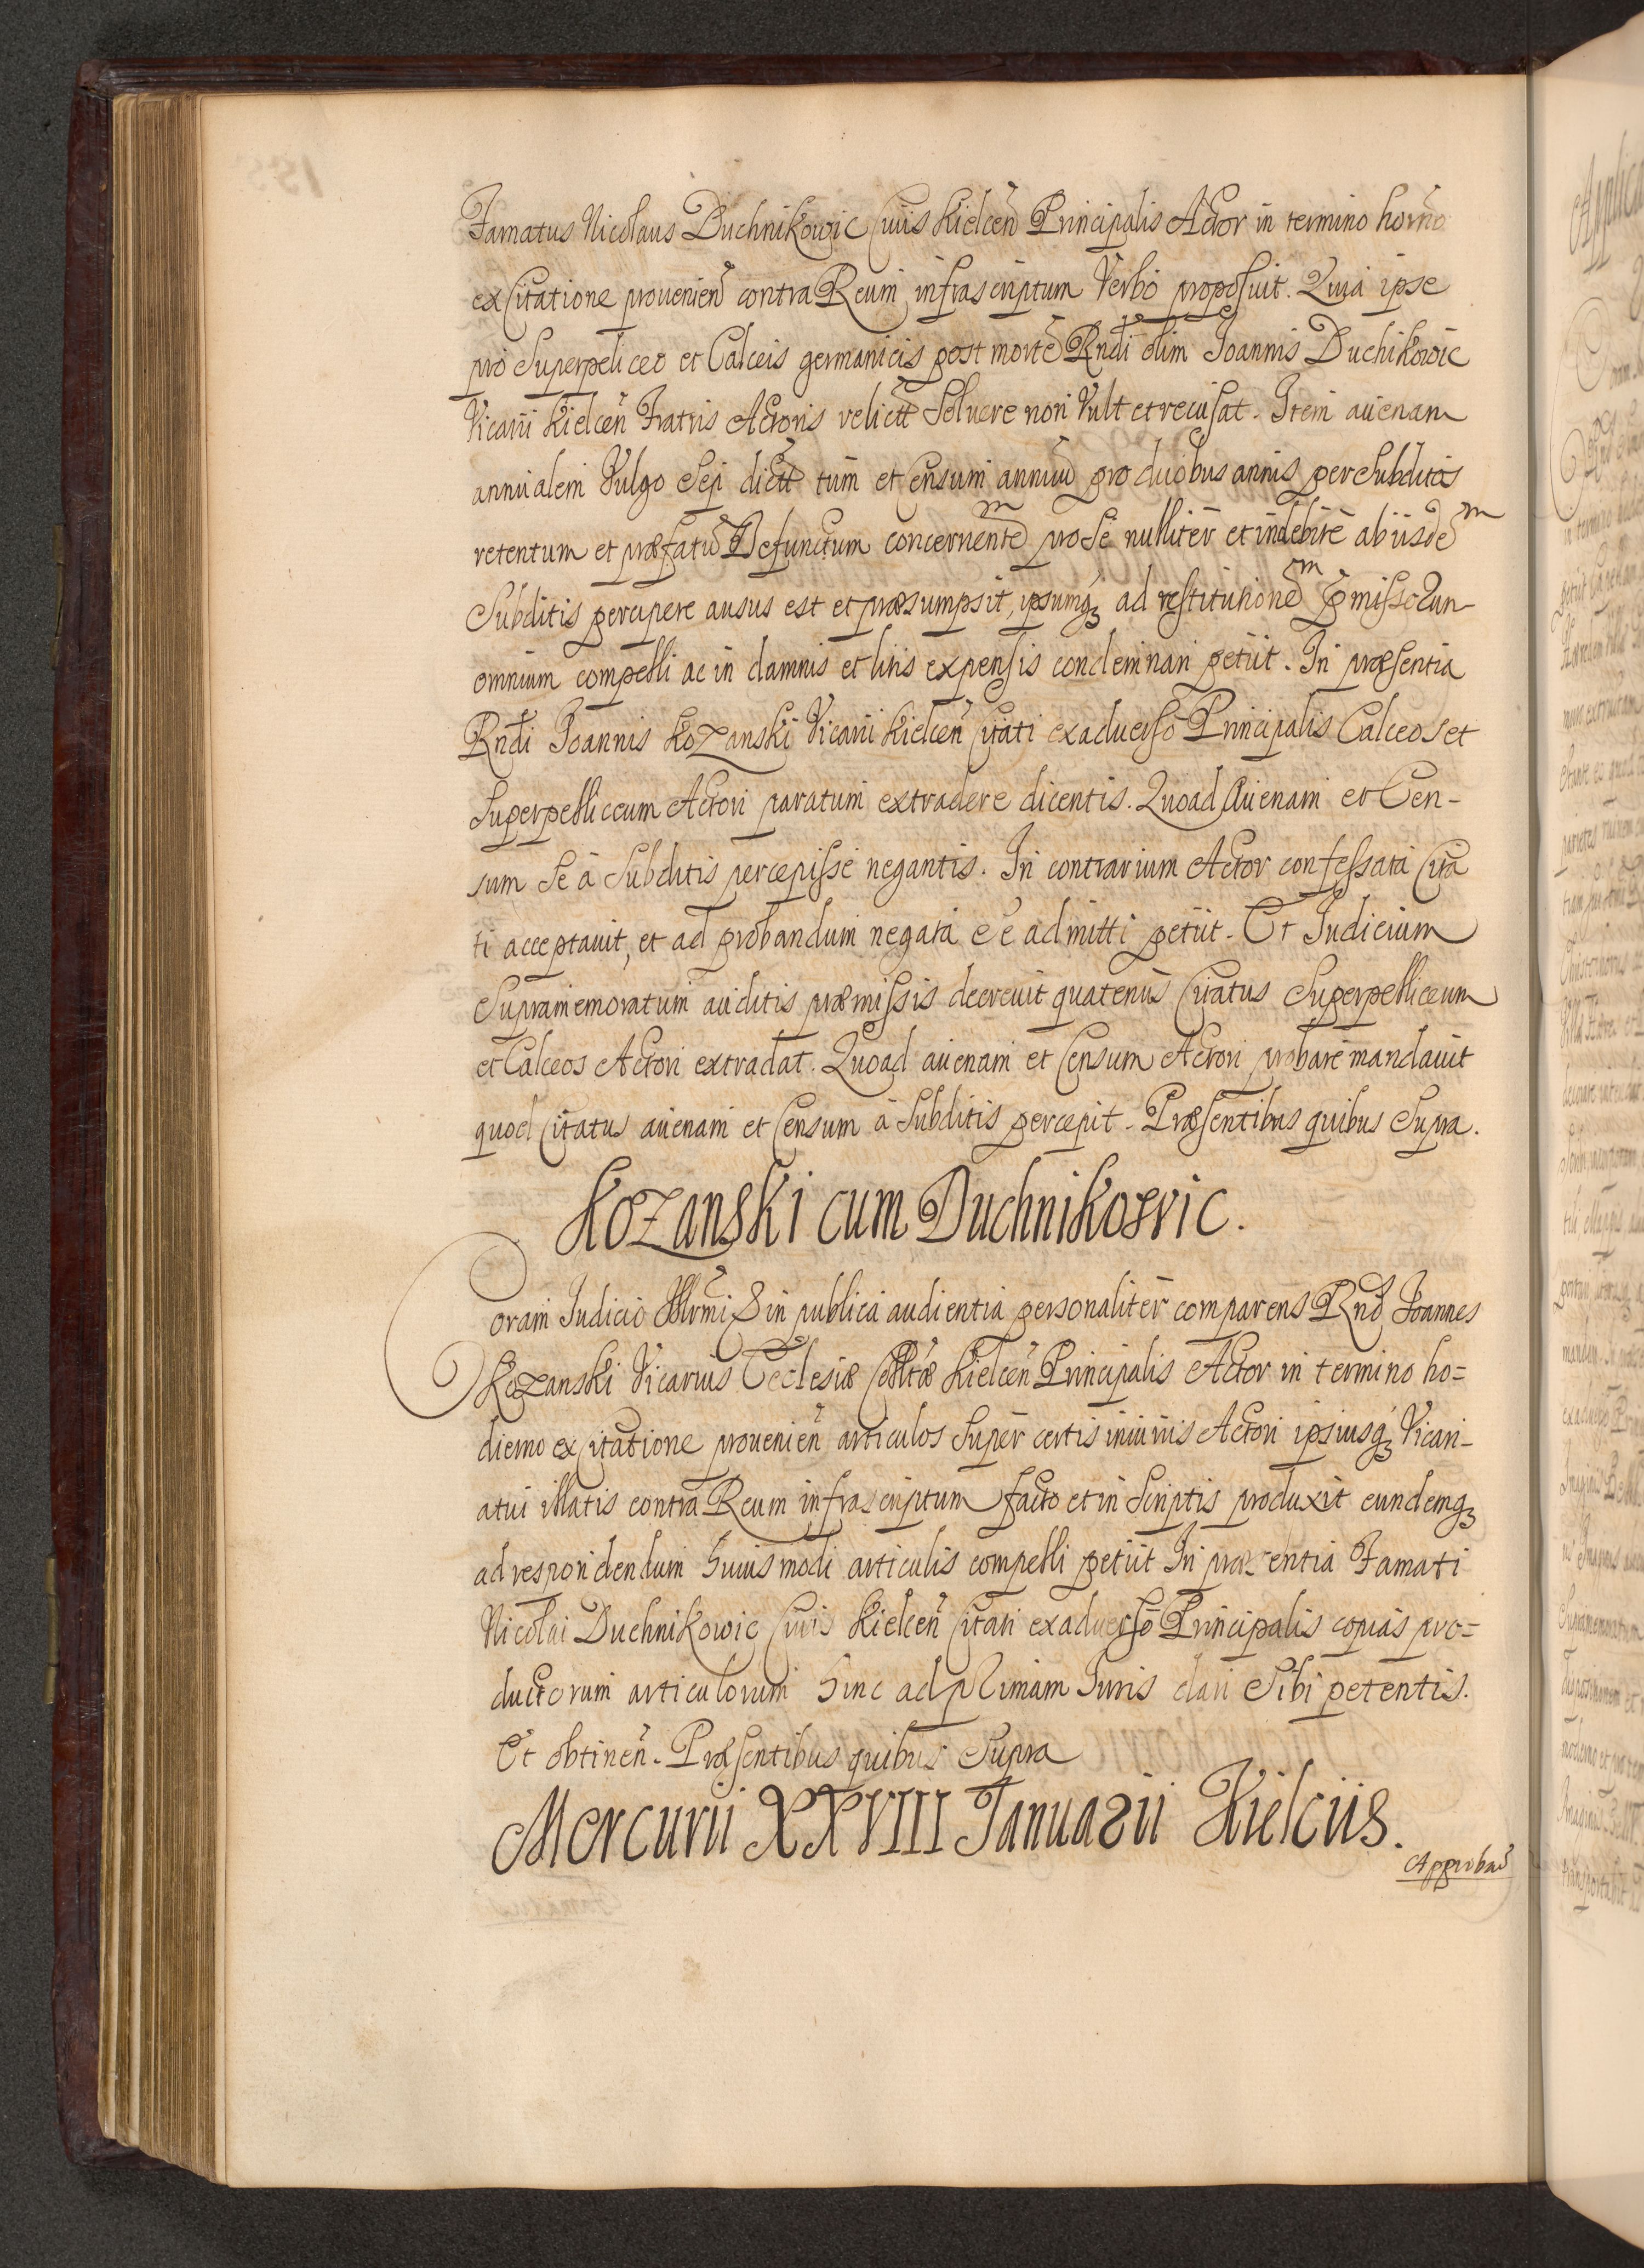 Famatus Nicolaus Duchnikowic Ciuis Kielceń Principalis Actor in termino horno
ex Citatione prouenień contra Reum infrascriptum Verbo proposuit. Quia ipse
pro Superpeliceo et Calceis germanicis post mortē Rndi olim Joannis Duchikowic
Vicarii Kielceń Fratris Actoris relictt Soluere non Vult et recusat. Item auenam
annualem Vulgo Sep dictt tum et Censum annuū pro duobus annis per Subditos
retentum et præfatū Defunctum concernentēm pro Se nulliter et indebite ab iisdēm
Subditis percipere ausus est et præsumpsit, ipsumq₃ ad restitutionēm p̄missorum
omnium compelli ac in damnis et litis expensis condemnari petiit. In præsentia
Rndi Joannis Kozanski Vicarii Kielceń Citati ex aduerso Principalis Calceos et
Superpelliceum Actori paratum extradere dicentis. Quoad Auenam et Cen-
sum Se à Subditis percepisse negantis. In contrarium Actor confessata Cita
ti acceptauit, et ad probandum negata eē admitti petiit. Et Judicium
Supramemoratum auditis præmissis decreuit quatenus Citatus Superpelliceum
et Calceos Actori extradat. Quoad auenam et Censum Actori probare mandauit
quod Citatus auenam et Censum à Subditis percepit. Præsentibus quibus Supra.
Kozanski cum Duchnikowic.
Coram Judicio Illrmi S in publica audientia personaliter comparens Rnd Joannes
Kozanski Vicarius Ecclesiæ Colltæ Kielceń Principalis Actor in termino ho=
dierno ex Citatione prouenień articulos Super certis iniuriis Actori ipsiusq₃ Vicari-
atui illatis contra Reum infrascriptum facto et in Scriptis produxit eundemq₃
ad respondendum huiusmodi articulis compelli petiit In præsentia Famati
Nicolai Duchnikowic Ciuis Kielceń Citati ex aduerso Principalis copias pro=
ductorum articulorum hinc ad primam Juris dari Sibi petentis.
Et obtineń. Præsentibus quibus Supra
Mercurii XXVIII Januarii Kielciis.
Approbaō